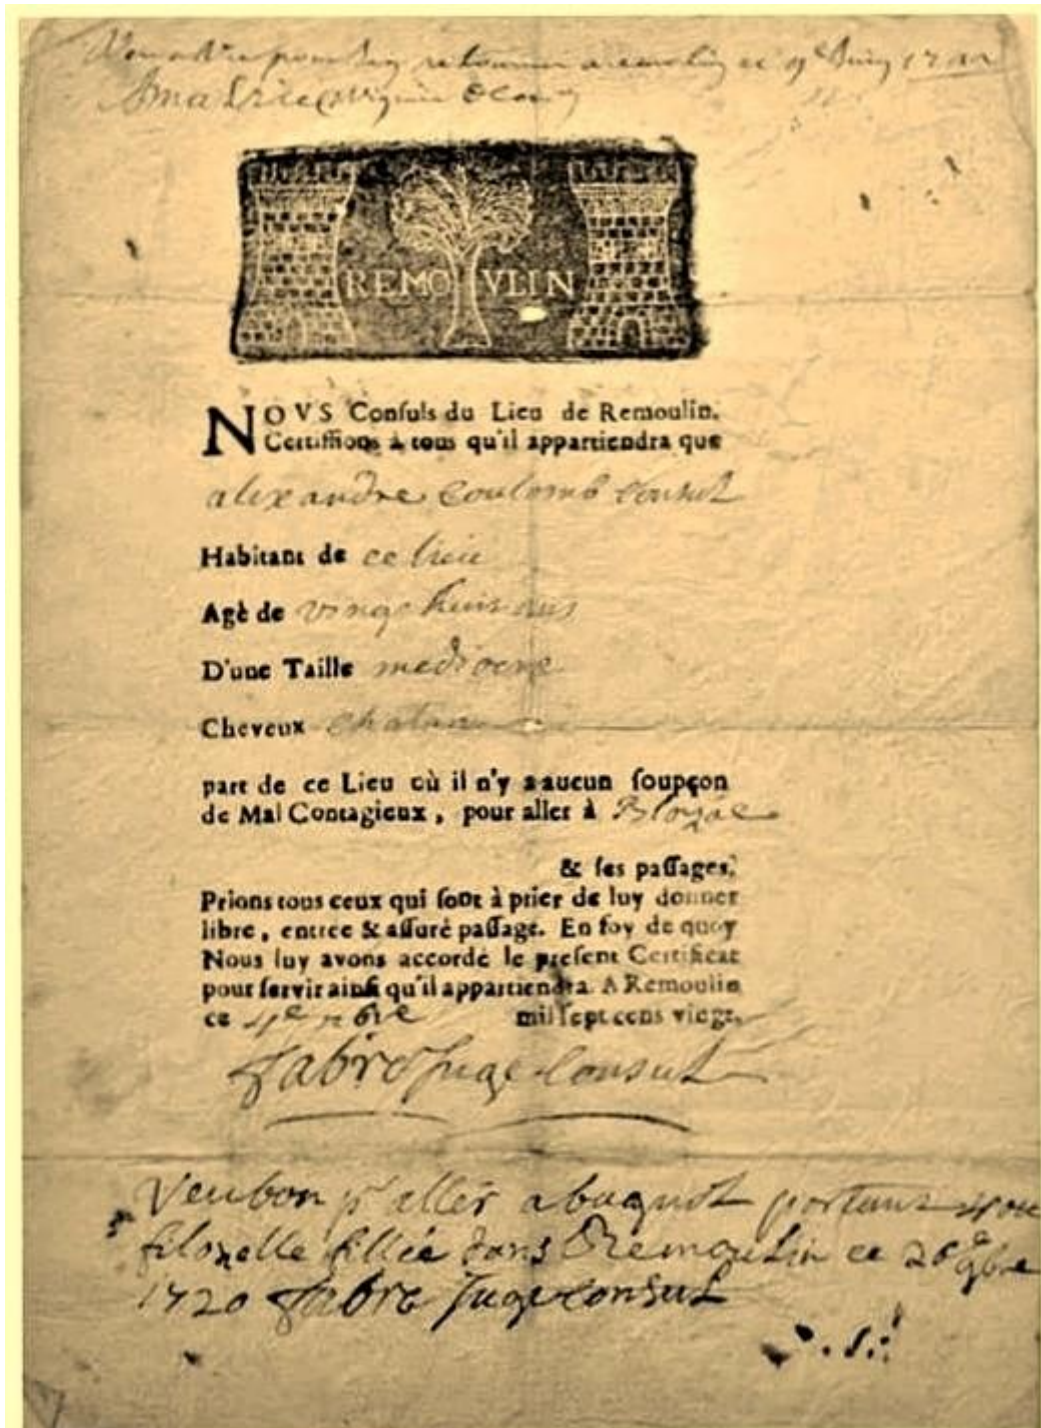 retourner a ce
REMOVLIN
NOVS Conſuls du Lieu de Remoulin,
Certiffions à tous qu'il appartiendra que
alexandre Coulomb Consul
Habitant de ce lieu
Agè de vingt huit ans
D'une Taille mediocre
Cheveux chatan
part de ce Lieu où il n'y a aucun ſoupçon
de Mal Contagieux, pour aller à Blozac
& ſes paſſages,
Prions tous ceux qui ſont à prier de luy donner
libre, entrée & aſſuré paſſage. En foy de quoy
Nous luy avons accordé le preſent Certificat
pour ſervir ainſi qu'il appartiendra. A Remoulin
ce 9bre mil ſept cens vingt,
fabre Juge Consul
Veu bon pr aller a portant
filozelle fillée dans Remoulin ce 26e 9bre
1720 fabre Juge consul